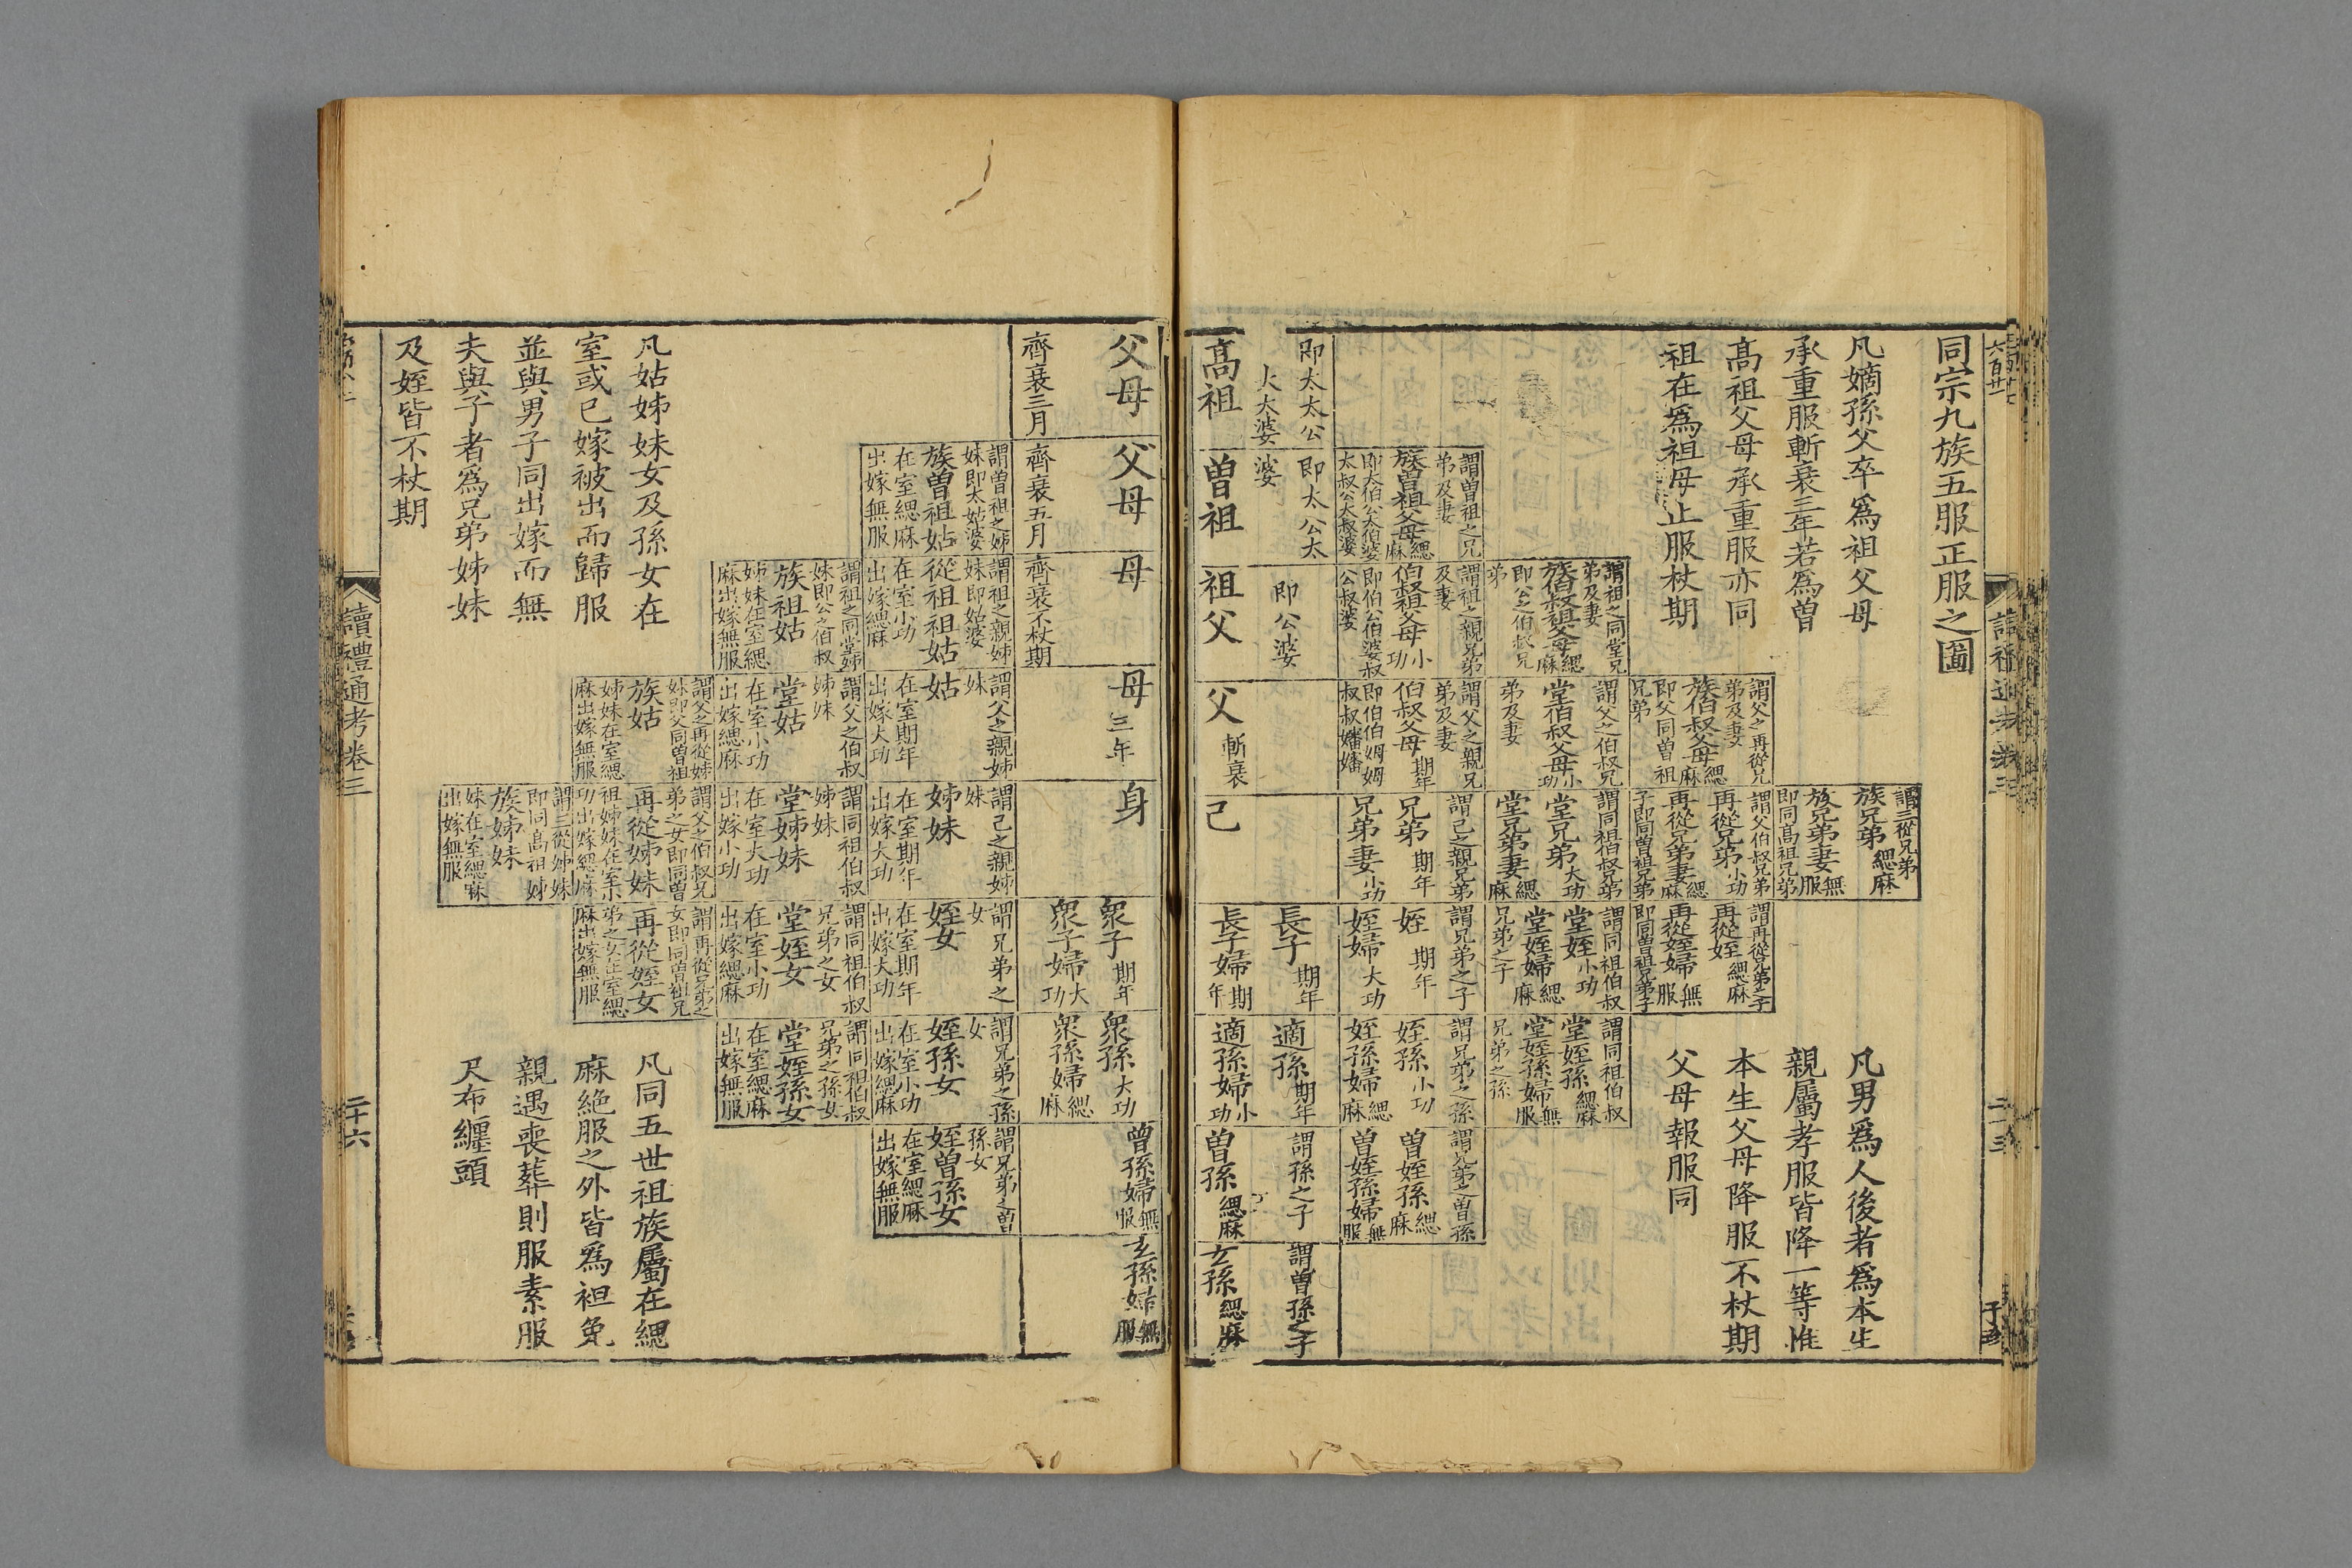 同宗九族五服正服之圖
凡嫡孫父卒爲祖父母
承重服斬衰三年若爲曾
高祖父母承重服亦同
祖在爲祖母止服杖期
凡男爲人後者爲本生
親屬孝服皆降一等惟
本生父母降服不杖期
父母報服同
謂三從兄弟
族兄弟緦麻
族兄弟妻無服
即同高祖兄弟
謂父之再從兄
弟及妻
族伯叔父母緦麻
即父同曾祖
兄弟
謂父伯叔兄弟
再從兄弟小功
再從兄弟妻緦麻
子即同曾祖兄弟
謂再從兄弟之子
再從姪緦麻
再從姪婦無服
即同曾祖兄弟子
謂祖之同堂兄
弟及妻
族伯叔祖父母緦麻
即公之伯叔兄
弟
謂父之伯叔兄
堂伯叔父母小功
弟及妻
謂同祖伯叔兄弟
堂兄弟大功
堂兄弟妻緦麻
謂同祖伯叔
堂姪小功
堂姪婦緦麻
兄弟之子
謂同祖伯叔
堂姪孫緦麻
堂姪孫婦無服
兄弟之孫
謂曾祖之兄
弟及妻
族曾祖父母緦麻
即太伯公太伯婆
太叔公太叔婆
謂祖之親兄弟
及妻
伯叔祖父母小功
即伯公伯婆叔
公叔婆
謂父之親兄
弟及妻
伯叔父母期年
即伯伯姆姆
叔叔嬸嬸
謂己之親兄弟
兄弟期年
兄弟妻小功
謂兄弟之子
姪期年
姪婦大功
謂兄弟之孫
姪孫小功
姪孫婦緦麻
謂兄弟之曾孫
曾姪孫緦麻
曾姪孫婦無服
即太太公
太太婆
高祖
即太公太
婆
曾祖
即公婆
祖父
父斬衰
己
長子期年
長子婦期年
適孫期年
適孫婦小功
謂孫之子
曾孫緦麻
謂曾孫之子
玄孫緦麻
父母
齊衰三月
父母
齊衰五月
母
齊衰不杖期
母三年
身
衆子期年
衆子婦大功
衆孫大功
衆孫婦緦麻
曾孫婦無服
玄孫婦無服
謂曾祖之姊
妹即太姑婆
族曾祖姑
在室緦麻
出嫁無服
謂祖之親姊
妹即姑婆
從祖祖姑
在室小功
出嫁緦麻
謂父之親姊
妹
姑
在室期年
出嫁大功
謂己之親姊
妹
姊妹
在室期年
出嫁大功
謂兄弟之
女
姪女
在室期年
出嫁大功
謂兄弟之孫
女
姪孫女
在室小功
出嫁緦麻
謂兄弟之曾
孫女
姪曾孫女
在室緦麻
出嫁無服
謂祖之同堂姊
妹即公之伯叔
族祖姑
姊妹在室緦
麻出嫁無服
謂父之伯叔
姊妹
堂姑
在室小功
出嫁緦麻
謂同祖伯叔
姊妹
堂姊妹
在室大功
出嫁小功
謂同祖伯叔
兄弟之女
堂姪女
在室小功
出嫁緦麻
謂同祖伯叔
兄弟之孫女
堂姪孫女
在室緦麻
出嫁無服
謂父之再從姊
妹即父同曾祖
族姑
姊妹在室緦
麻出嫁無服
謂父之伯叔兄
弟之女即同曾
再從姊妹
祖姊妹在室小
功出嫁緦麻
謂再從兄弟之
女即同曾祖兄
再從姪女
弟之女在室緦
麻出嫁無服
謂三從姊妹
即同高祖姊
族姊妹
妹在室緦麻
出嫁無服
凡姑姊妹女及孫女在
室或已嫁被出而歸服
並與男子同出嫁而無
夫與子者爲兄弟姊妹
及姪皆不杖期
凡同五世祖族屬在緦
麻絶服之外皆爲袒免
親遇喪葬則服素服
尺布纏頭
讀禮通考卷三
二十六